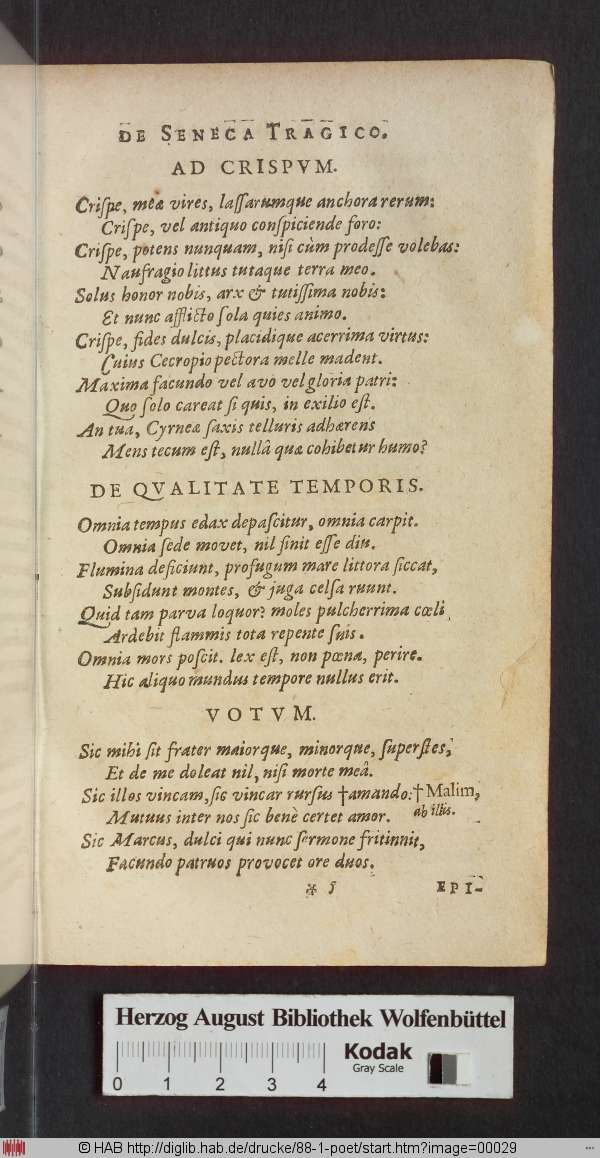 DE SENECA TRAGICO.
AD CRISPVM.
Criſpe, meæ vires, laſſarumque anchora rerum:
Criſpe, vel antiquo conſpiciende foro:
Criſpe, potens nunquam, niſi cùm prodeſſe volebas:
Naufragio littus tutaque terra meo.
Solus honor nobis, arx & tutiſſima nobis:
Et nunc afflicto ſola quies animo.
Criſpe, fides dulcis, placidique acerrima virtus:
Cuius Cecropio pectora melle madent.
Maxima facundo vel avo vel gloria patri:
Quo ſolo careat ſi quis, in exilio eſt.
An tua, Cyrneæ ſaxis telluris adhærens
Mens tecum eſt, nullâ quæ cohibetur humo?
DE QVALITATE TEMPORIS.
Omnia tempus edax depaſcitur, omnia carpit.
Omnia ſede movet, nil ſinit eſſe diu.
Flumina deficiunt, profugum mare littora ſiccat,
Subſidunt montes, & juga celſa ruunt.
Quid tam parva loquor? moles pulcherrima cœli
Ardebit flammis tota repente ſuis.
Omnia mors poſcit. lex eſt, non pœna, perire.
Hic aliquo mundus tempore nullus erit.
VOTVM.
Sic mihi ſit frater maiorque, minorque, ſuperſtes,
Et de me doleat nil, niſi morte meâ.
Sic illos vincam, ſic vincar rurſus †amando: †Malim,
Mutuus inter nos ſic benè certet amor. ab illis.
Sic Marcus, dulci qui nunc ſermone fritinnit,
Facundo patruos provocet ore duos.
* 5 EPI-
Herzog August Bibliothek Wolfenbüttel
Kodak
Gray Scale
0 1 2 3 4
© HAB http://diglib.hab.de/drucke/88-1-poet/start.htm?image=00029